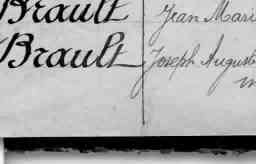 Brault Jean Mari
Brault Joseph August